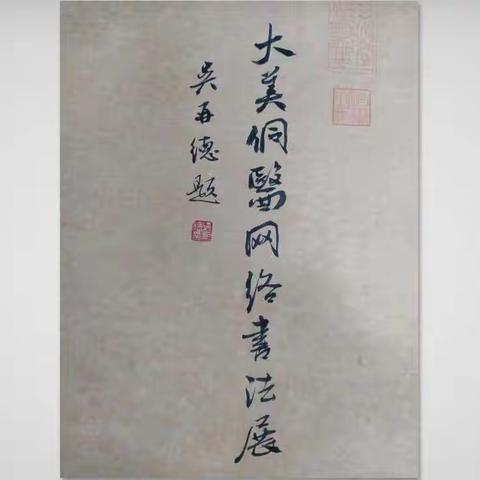 大美侗醫网络書法展
吴再德題